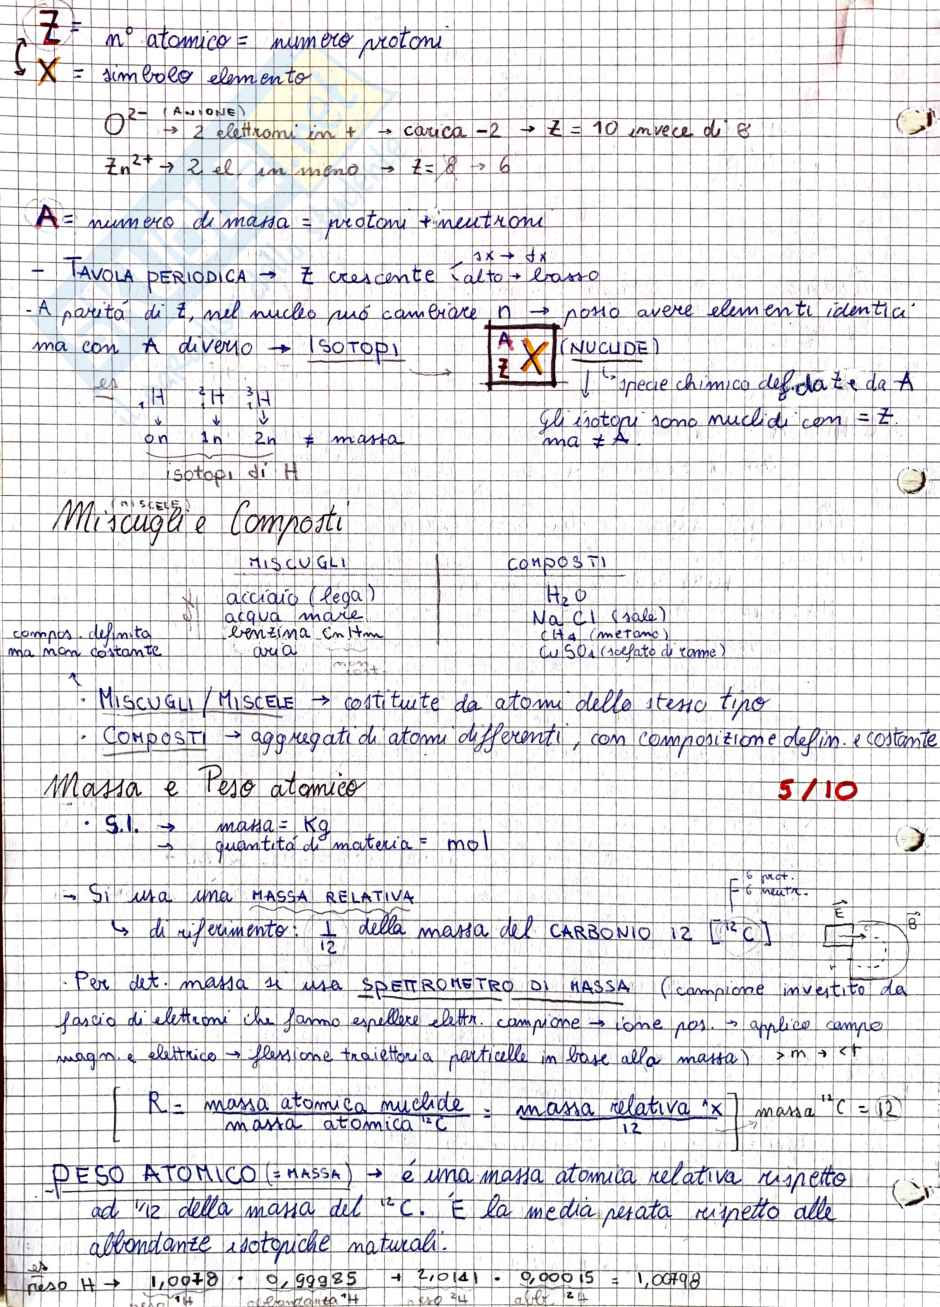 Z = n° atomico = numero protoni
X = simbolo elemento
O²⁻ (ANIONE) → 2 elettroni in + → carica -2 → Z = 10 invece di 8
Zn²⁺ → 2 el. in meno → Z = 8 → 6
A = numero di massa = protoni + neutroni
- TAVOLA PERIODICA → Z crescente { sx → dx
alto → basso
- A parità di Z, nel nucleo può cambiare n → posso avere elementi identici
ma con A diverso → ISOTOPI → A Z X (NUCLIDE)
↳ specie chimico def. da Z e da A
Gli isotopi sono nuclidi con = Z
ma ≠ A.
es
₁H ²₁H ³₁H
0n 1n 2n ≠ massa
isotopi di H
Miscugli (MISCELE) e Composti
MISCUGLI COMPOSTI
acciaio (lega) H₂O
acqua mare NaCl (sale)
benzina CnHm CH₄ (metano)
aria CuSO₄ (solfato di rame)
non cost.
compos. definita
ma non costante
· MISCUGLI / MISCELE → costituite da atomi dello stesso tipo
· COMPOSTI → aggregati di atomi differenti, con composizione defin. e costante
Massa e Peso atomico 5/10
· S.I. → massa = Kg
→ quantità di materia = mol
→ Si usa una MASSA RELATIVA
6 prot.
6 neutr.
↳ di riferimento: 1/12 della massa del CARBONIO 12 [¹²C]
E B
r
· Per det. massa si usa SPETTROMETRO DI MASSA (campione investito da
fascio di elettroni che fanno espellere elettr. campione → ione pos. → applico campo
magn. e elettrico → flessione traiettoria particelle in base alla massa) >m → <r
[ R = massa atomica nuclide / massa atomica ¹²C = massa relativa ᴬX / 12 ] massa ¹²C = 12
- PESO ATOMICO (= MASSA) → é una massa atomica relativa rispetto
ad 1/12 della massa del ¹²C. É la media pesata rispetto alle
abbondanze isotopiche naturali.
es
peso H → 1,0078 · 0,99985 + 2,0141 · 0,00015 = 1,00798
peso ¹H abbondanza ¹H peso ²H abb. ²H